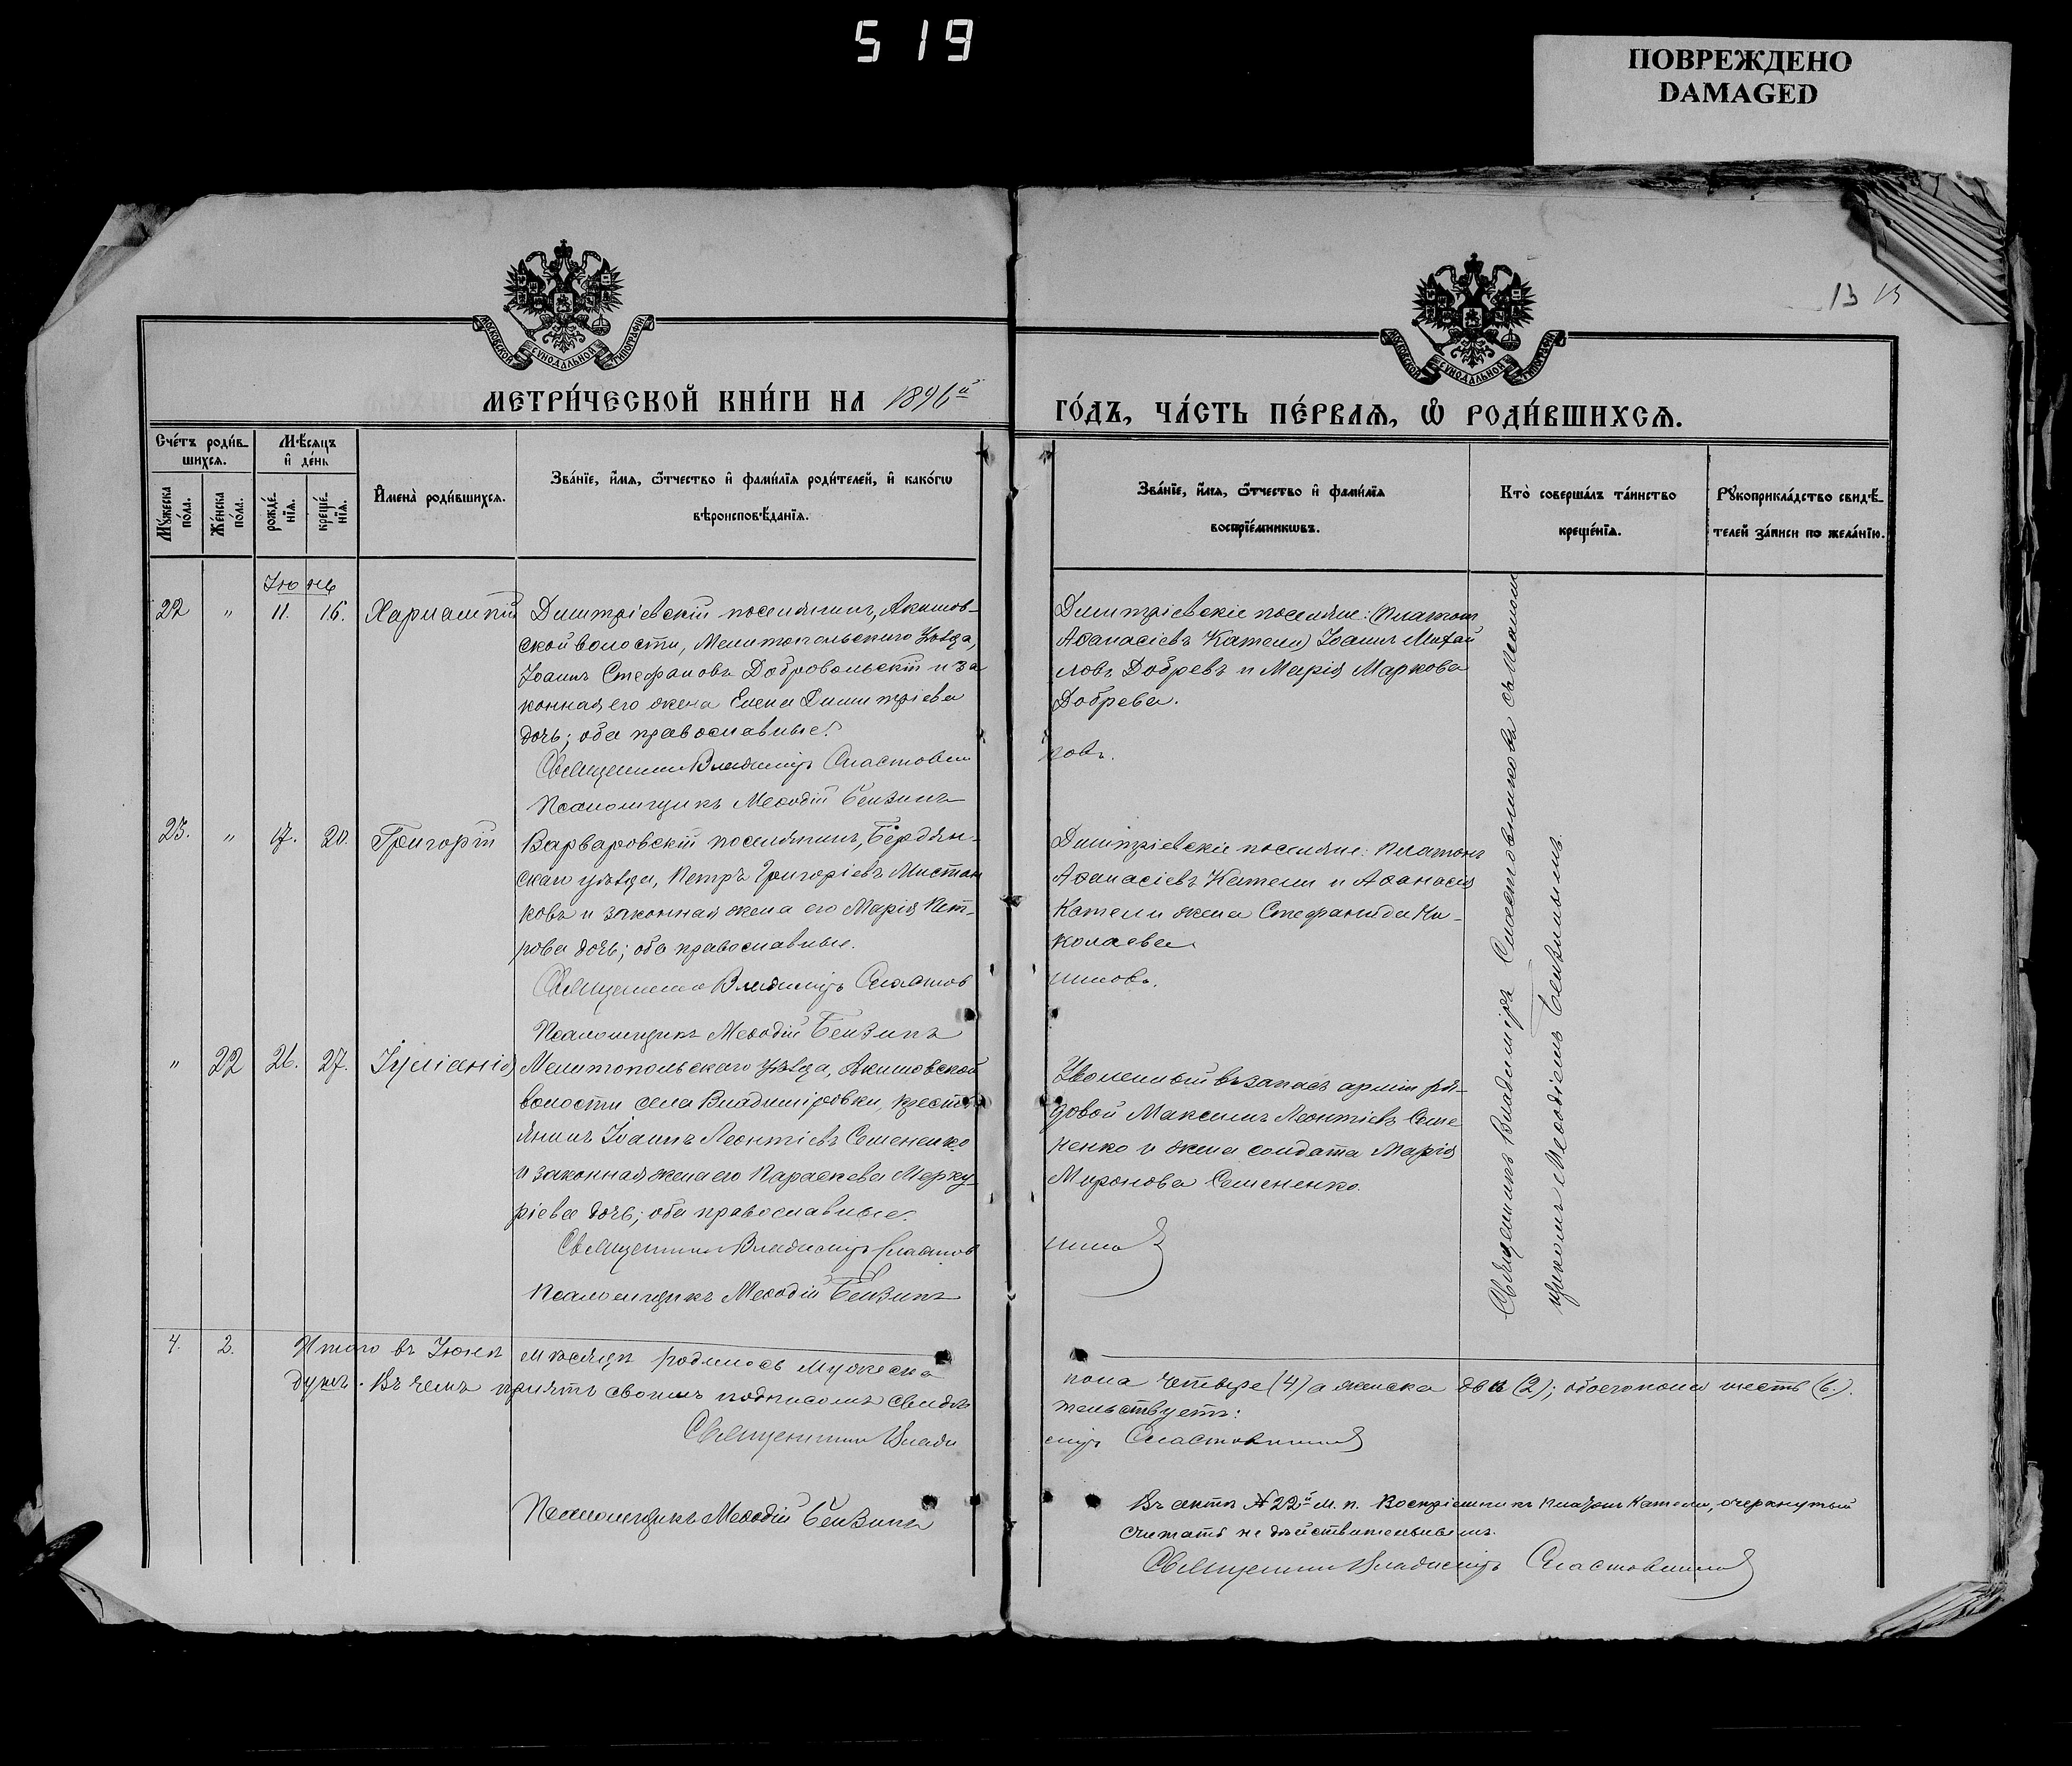 519
ПОВРЕЖДЕНО
DAMAGED
13 13
МОСКОВСКОЙ СѴНОДАЛЬНОЙ ТИПОГРАФІИ
МОСКОВСКОЙ СѴНОДАЛЬНОЙ ТИПОГРАФІИ
МЕТРИ́ЧЕСКОЙ КНИ́ГИ НА 1896й
ГО́ДЪ, ЧА́СТЬ ПЕ́РВАѦ, Ѡ҆ РОДИ́ВШИХСѦ.
Сче́тъ роди́в-
шихсѧ.
Мꙋ́жеска по́ла.
Же́нска по́ла.
Мѣ́сѧцъ
и҆ де́нь
рожде́нїѧ.
креще́нїѧ.
И҆мена̀ роди́вшихсѧ.
Зва́нїе, и҆́мѧ, ѻ҆́тчество и҆ фами́лїѧ роди́телей, и҆ како́гѡ
вѣроисповѣ́данїѧ.
Зва́нїе, и҆́мѧ, ѻ҆́тчество и҆ фами́лїѧ
воспрїе́мникѡвъ.
Кто̀ соверша́лъ та́инство
креще́нїѧ.
Рꙋкоприкла́дство свидѣ́-
телей за́писи по жела́нїю.
Іюнь
22 " 11. 16. Харлампій
Димитріевскій поселянинъ, Акимов-
ской волости, Мелитопольскаго уѣзда,
Іоаннъ Стефановъ Добровольскій и за
конная его жена Елена Димитріева
дочь; оба православные.
Священникъ Владиміръ Сластовни
Псаломщикъ Меѳодій Бензинъ
Димитріевскіе поселяне: (Платонъ
Аѳанасіевъ Кателли) Іоаннъ Михай
ловъ Добревъ и Марія Маркова
Добрева.
ковъ.
23. " 17. 20. Григорій
Варваровскій поселянинъ, Бердян-
скаго уѣзда, Петръ Григоріевъ Мистан
ковъ и законная жена его Марія Пет-
рова дочь; оба православные.
Священникъ Владиміръ Сластов
Псаломщикъ Меѳодій Бензинъ
Димитріевскіе поселяне: Платонъ
Аѳанасіевъ Кателли и Аѳанасія
Кателли жена Стефанида Ни-
колаева.
никовъ.
" 22 26. 27. Іуліанія
Мелитопольскаго уѣзда, Акимовской
волости села Владиміровки, кресть
янинъ Іоаннъ Леонтіевъ Семененко
и законная жена его Параскева Мерку-
ріева дочь; оба православные.
Священникъ Владиміръ Сластов
Псаломщикъ Меѳодій Бензинъ
Уволенный въ запасъ арміи ря-
довой Максимъ Леонтіевъ Семе
ненко и жена солдата Марія
Миронова Семененко.
Священникъ Владиміръ Сластовниковъ съ псалом
щикомъ Меѳодіемъ Бензинымъ.
4. 2. Итого въ Іюнѣ мѣсяцѣ родилось мужеска
пола четыре (4) а женска двѣ (2); обоего пола шесть (6.).
душъ. Въ чемъ причтъ своимъ подписомъ свидѣ
тельствуетъ:
Священникъ Влади
міръ Сластовников
Псаломщикъ Меѳодій Бензинъ
Въ актѣ № 22й м. п. Воспріемникъ Платонъ Кателли, очеркнутый
считать не дѣйствительнымъ.
Священникъ Владиміръ Сластовников